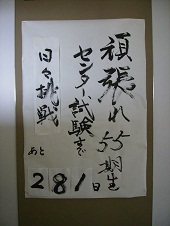 頑張れ55期生
センター試験まで
日々挑戦
あと
281日